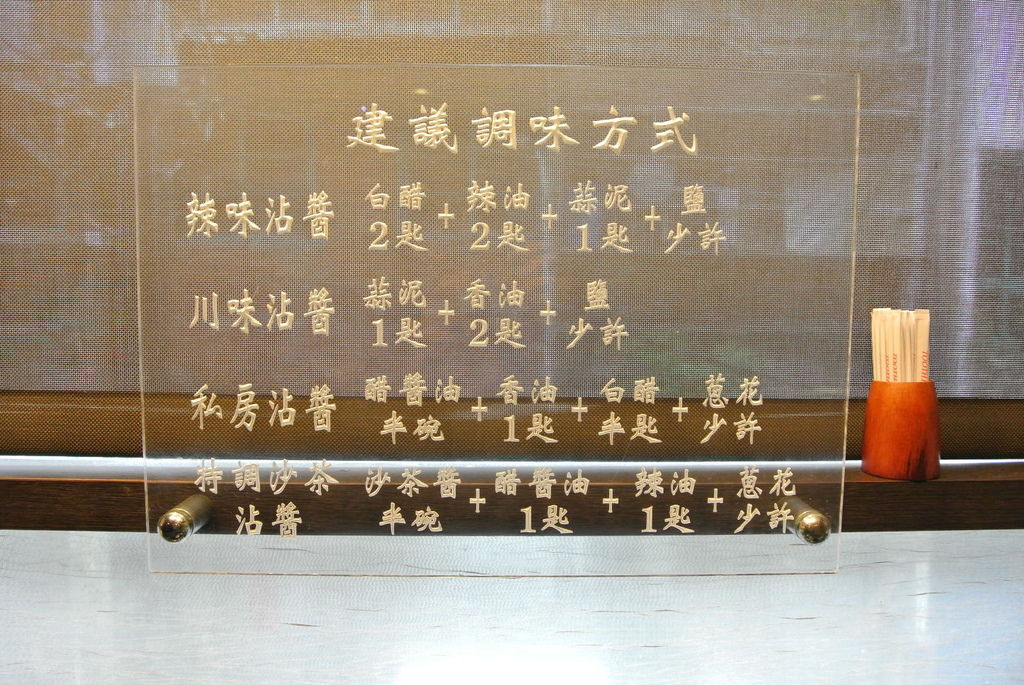 建議調味方式
辣味沾醬 白醋2匙+辣油2匙+蒜泥1匙+鹽少許
川味沾醬 蒜泥1匙+香油2匙+鹽少許
私房沾醬 醋醬油半碗+香油1匙+白醋半匙+蔥花少許
特調沙茶沾醬 沙茶醬半碗+醋醬油1匙+辣油1匙+蔥花少許